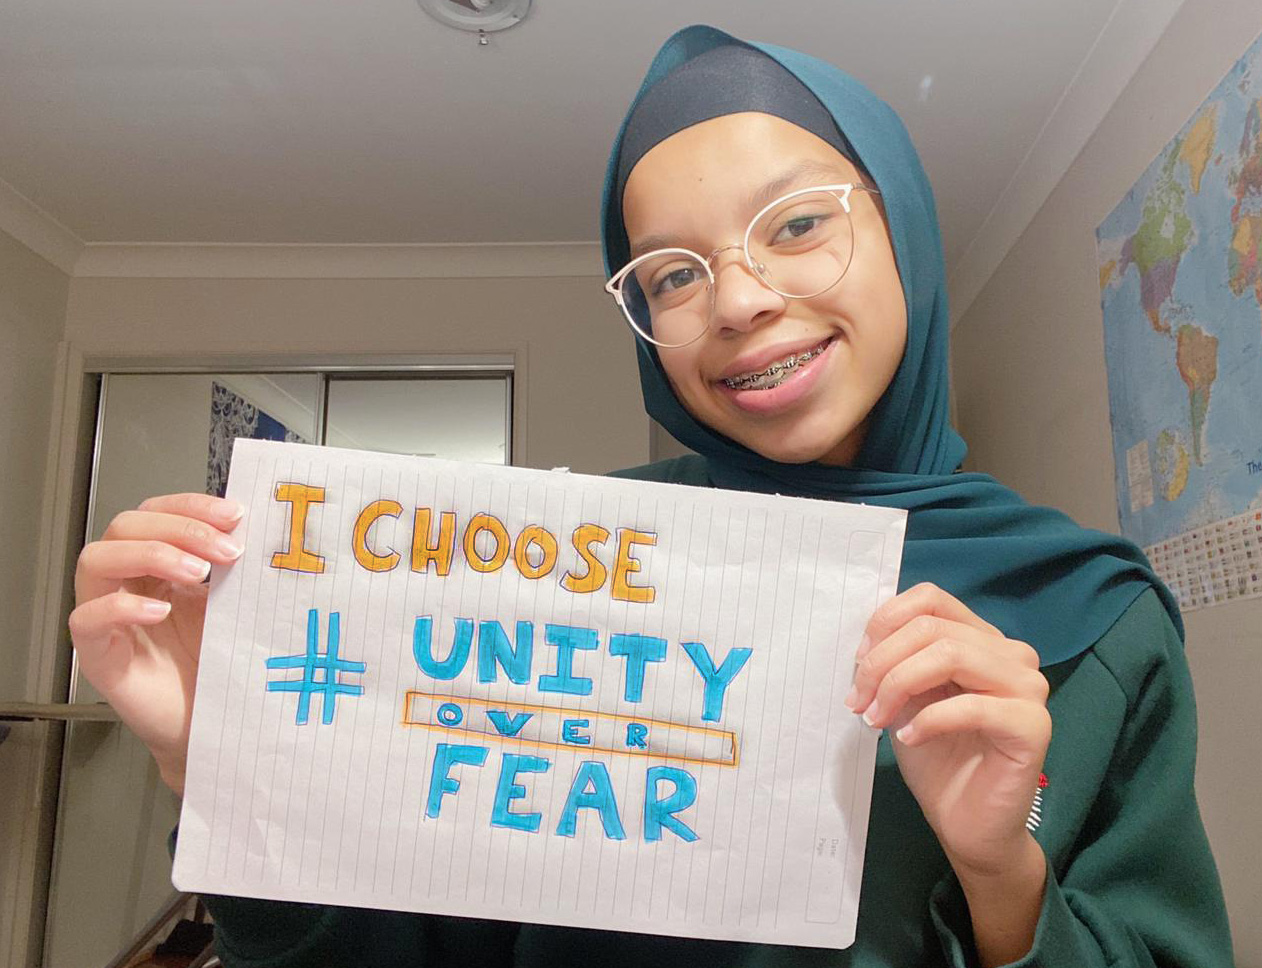 I CHOOSE
# UNITY
OVER
FEAR
Date:
Page:
The